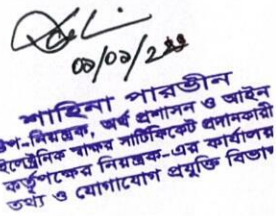 ০৩/০৩/২
শাহিনা পারভীন
উপ-নিয়ন্ত্রক, অর্থ প্রশাসন ও আইন
ইলেক্ট্রনিক স্বাক্ষর সার্টিফিকেট প্রদানকারী
কর্তৃপক্ষের নিয়ন্ত্রক-এর কার্যালয়
তথ্য ও যোগাযোগ প্রযুক্তি বিভাগ